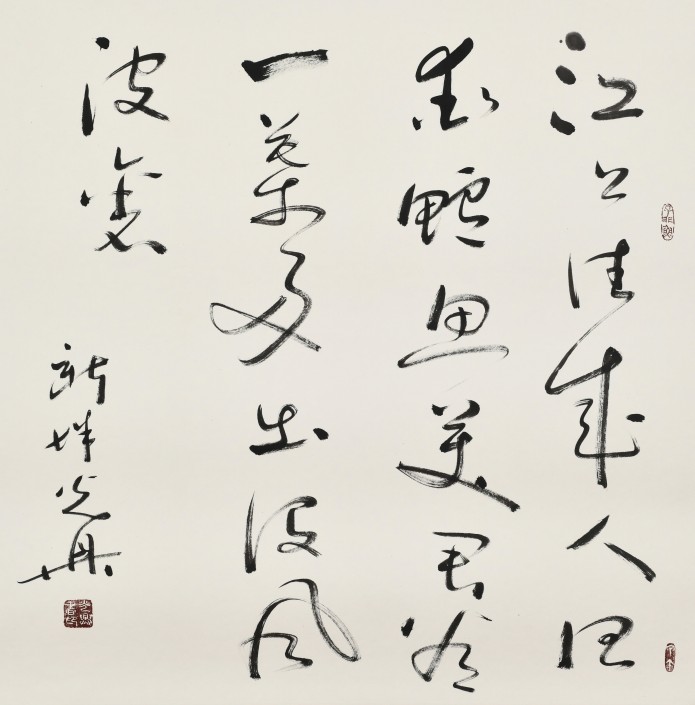 江上往來人但
愛鱸魚美君看
一葉舟出沒風
波裏